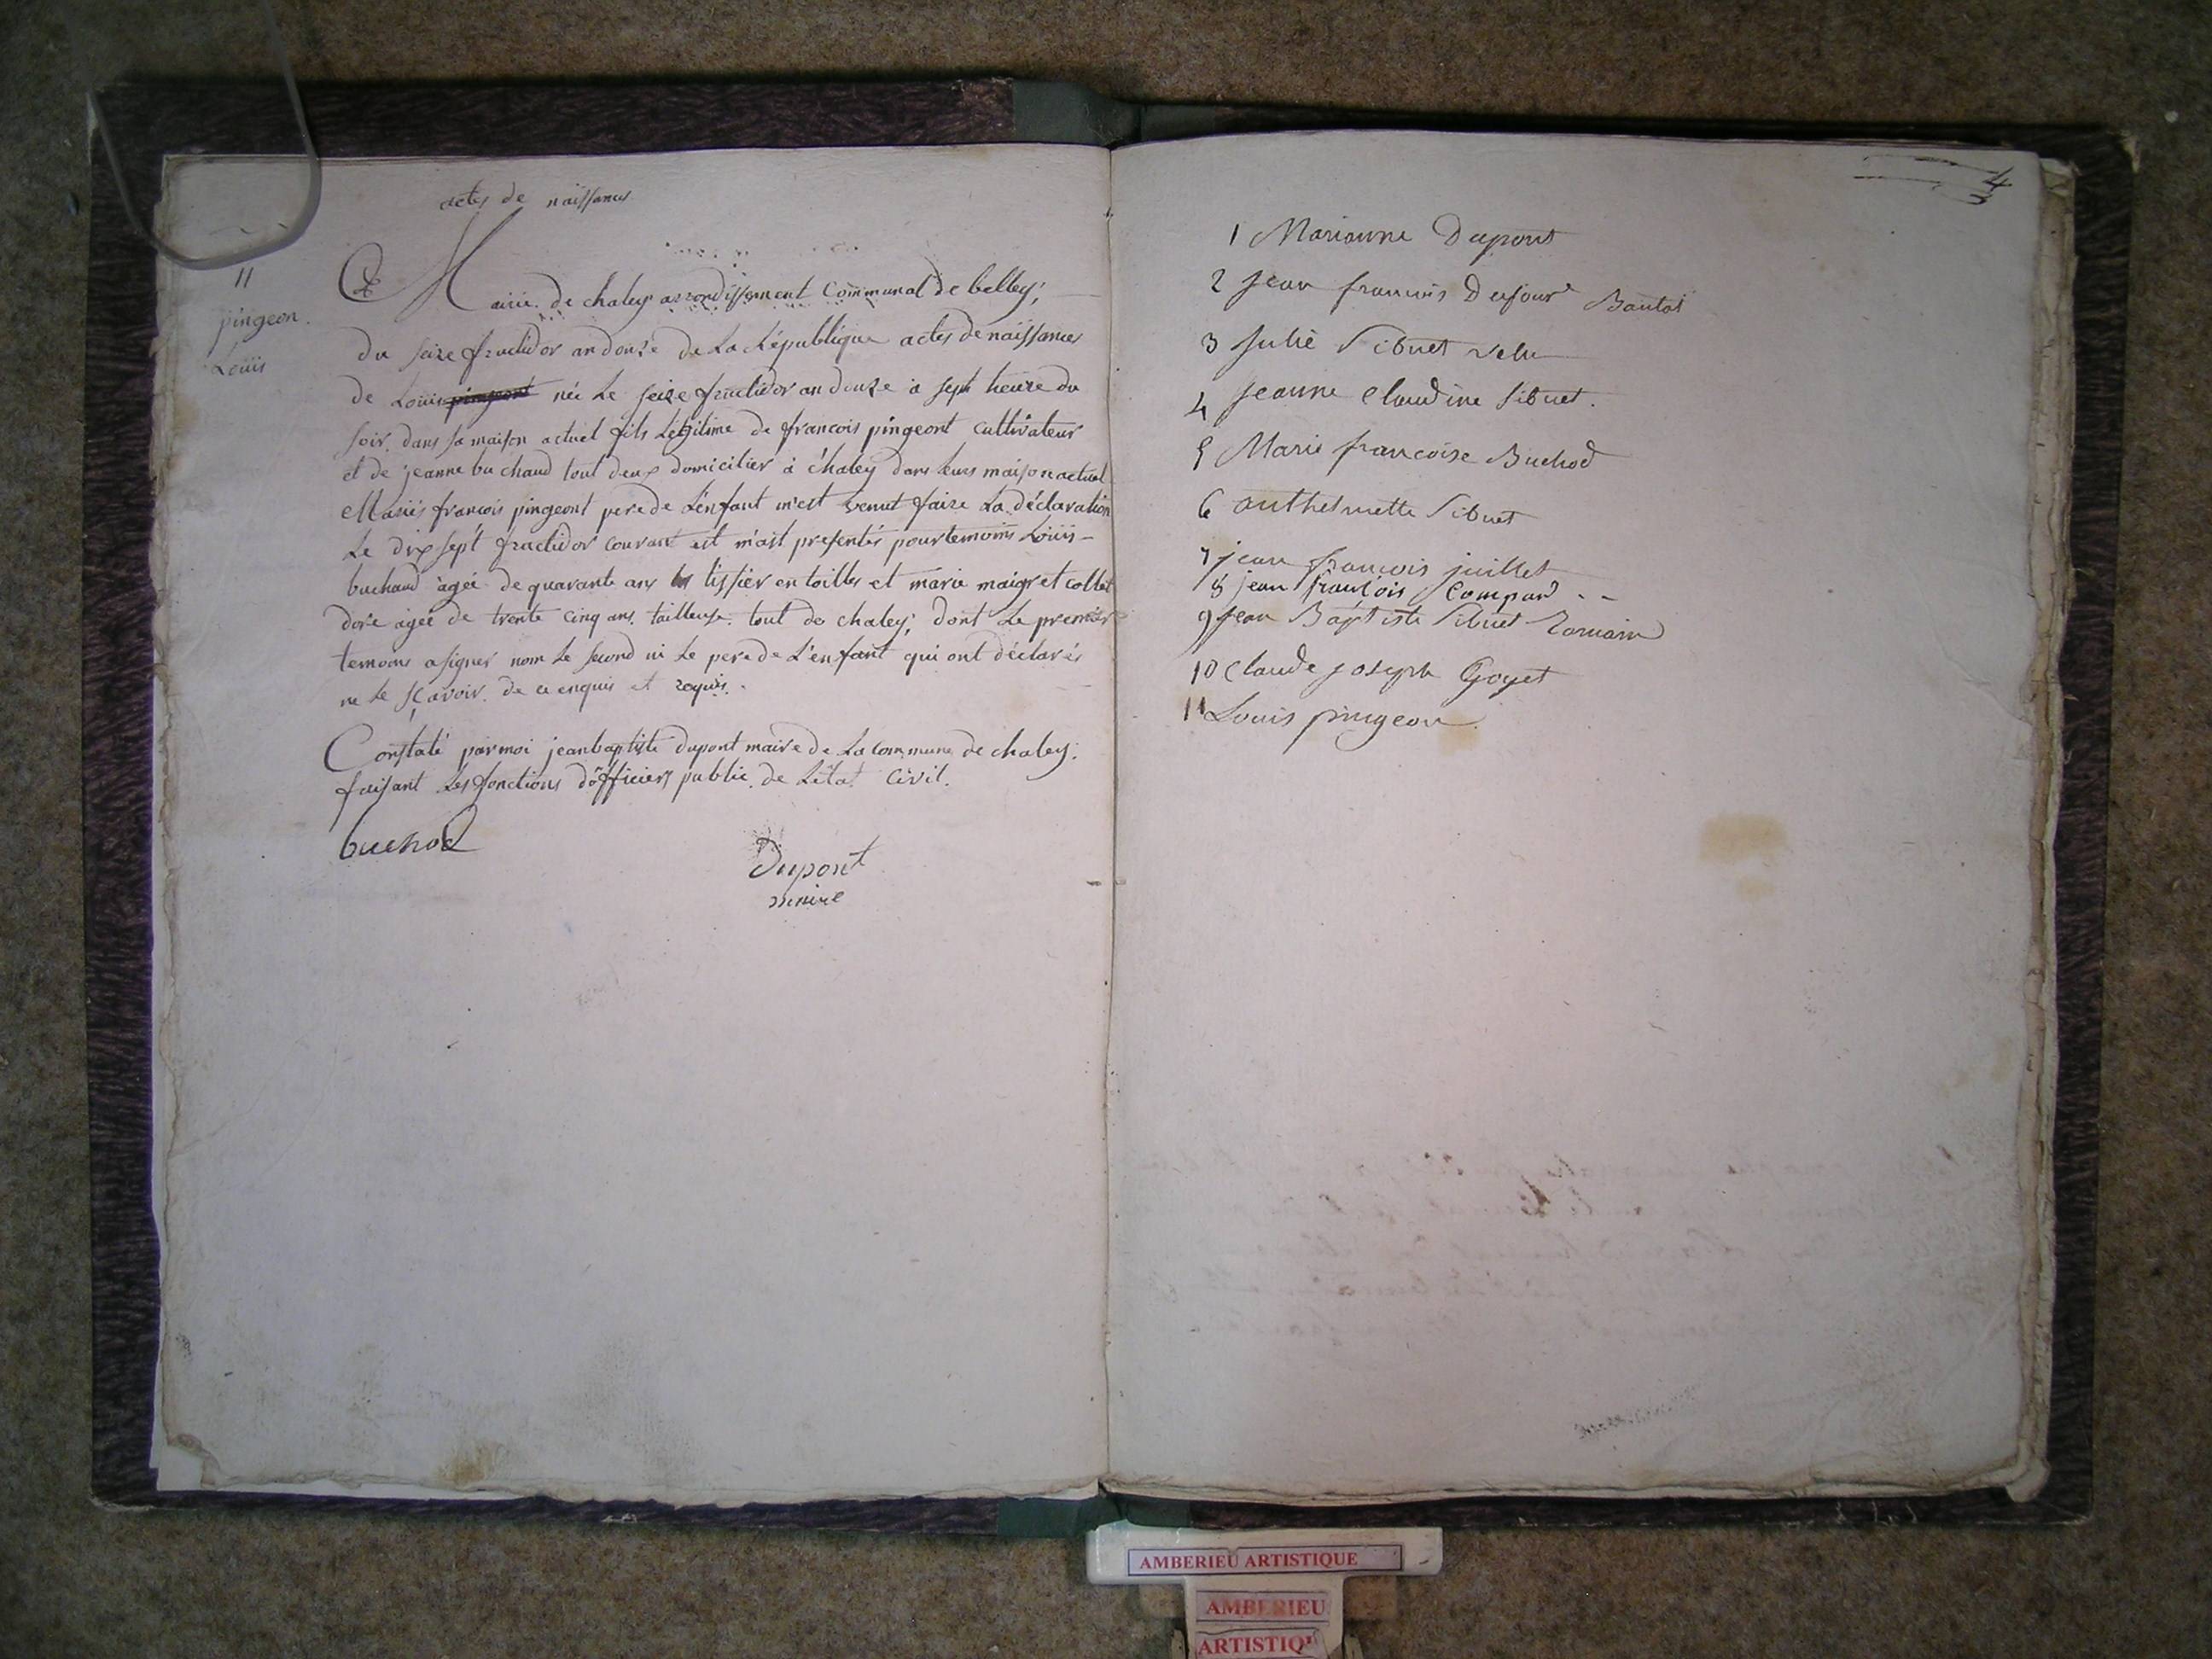 actes de naissances
11
pingeon.
Louis
Mairie de chaley arrondissement Communal de belley,
du seize fructidor an douze de La République actes de naissances
de Louis pingeont née Le seize fructidor an douze à sept heure du
soir, dans sa maison actuel fils Légitime de francois pingeont cultivateur
et de jeanne buchaud tout deux domicilier à chaley dans leurs maison actuel
francois pingeont pere de L'enfant m'est venut faire La déclaration
Le dix sept fructidor courant et m'ait presentés pour temoins Louis
buchaud agée de quarante ans tissier en toilles et marie maigret collet
dore agée de trente cinq ans, tailleuse. tout de chaley; dont Le premier
temoins a signer nom Le second ni Le pere de L'enfant qui ont déclarés
ne Le sçavoir. de ce enquis et requis.
Constaté par moi jean baptiste dupont maire de La commune de chaley.
faisant Les fonctions d'officiers public. de L'état Civil.
buchod
Dupont
maire
4
3
1 Marianne Dupont
2 Jean francois Dufour Bautat
3 Julie Sibuet
4 Jeanne Claudine Sibuet.
5 Marie francoise Buchod
6 anthelmette Sibuet
7 jean francois juillet
8 jean francois Compard - -
9 Jean Baptiste Sibuet Romain
10 Claude joseph Goyet
11 Louis pingeon.
AMBERIEU ARTISTIQUE
AMBERIEU
ARTISTIQ